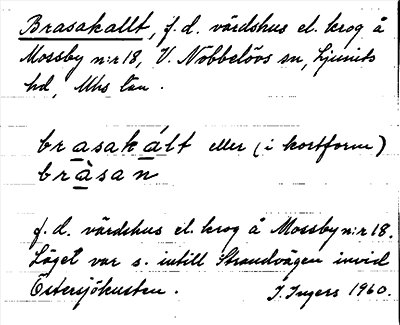 Brasakallt, f.d. värdshus el. krog å
Mossby n:r 18, V. Nöbbelövs sn, Ljunits
hd, Mhs län.
brasakált eller (i kortform)
bràsan
f.d. värdshus el. krog å Mossby n:r 18.
Läget var s. intill Strandvägen invid
Östersjökusten.
J. Ingers 1960.